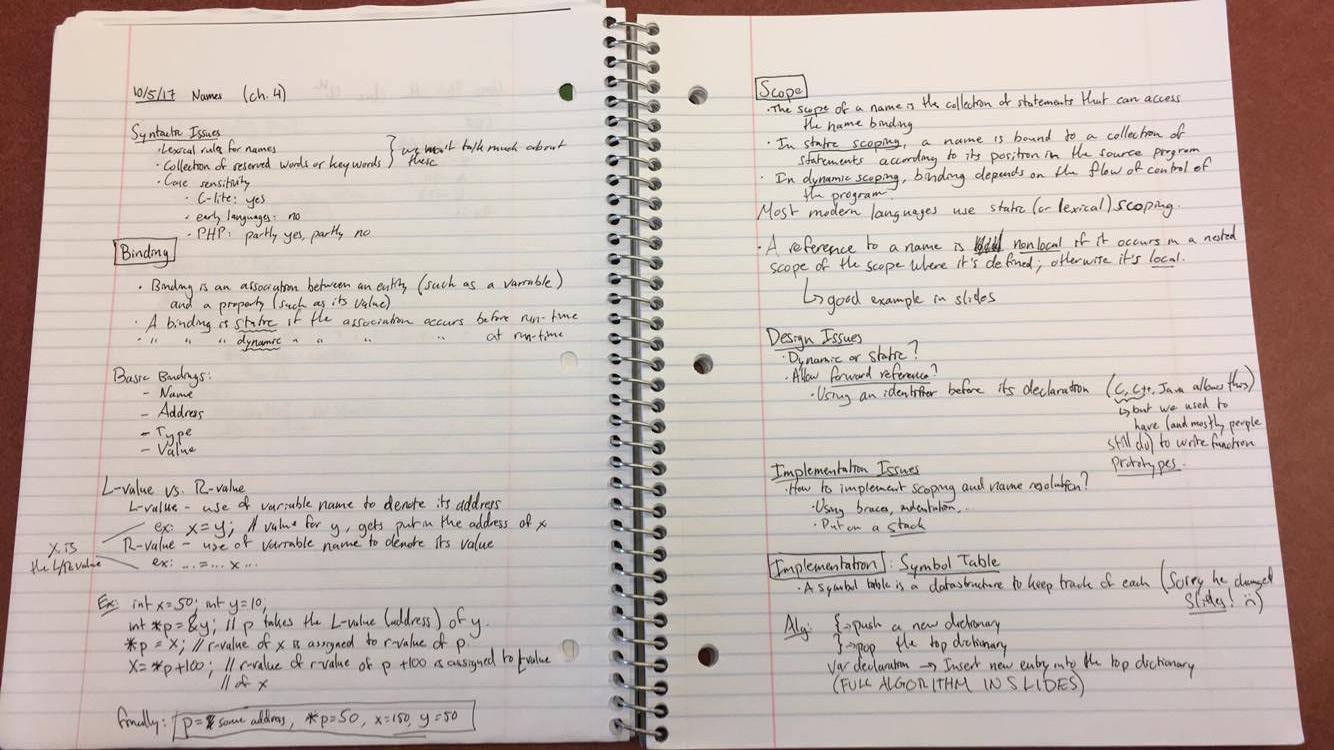 10/5/17 Names (ch. 4)
Syntactic Issues
· Lexical rules for names
· Collection of reserved words or keywords } we won't talk much about these
· Case sensitivity
· C-lite: yes
· early languages: no
· PHP: partly yes, partly no
Binding
· Binding is an association between an entity (such as a variable)
and a property (such as its value)
· A binding is static if the association occurs before run-time
· " " " dynamic " " " " at run-time
Basic Bindings:
- Name
- Address
- Type
- Value
L-value vs. R-value
L-value - use of variable name to denote its address
ex: x=y; // value for y, gets put in the address of x
R-value - use of variable name to denote its value
ex: ...=... x ...
x is
the L/R value
Ex: int x=50; int y=10;
int *p=&y; // p takes the L-value (address) of y.
*p = x; // r-value of x is assigned to r-value of p.
x= *p+100; // r-value of r-value of p +100 is assigned to L-value
// of x
finally: p= some address, *p=50, x=150, y=50
Scope
· The scope of a name is the collection of statements that can access
the name binding
· In static scoping, a name is bound to a collection of
statements according to its position in the source program
· In dynamic scoping, binding depends on the flow of control of
the program.
Most modern languages use static (or lexical) scoping.
· A reference to a name is nonlocal if it occurs in a nested
scope of the scope where it's defined; otherwise it's local.
↳ good example in slides
Design Issues
· Dynamic or static?
· Allow forward reference?
· Using an identifier before its declaration (C, C++, Java allows this)
↳ but we used to
have (and mostly people
still do) to write function
prototypes.
Implementation Issues
· How to implement scoping and name resolution?
· Using braces, indentation...
· Put on a stack
Implementation: Symbol Table
· A symbol table is a datastructure to keep track of each (Sorry he changed
slides! :()
Alg: { → push a new dictionary
} → pop the top dictionary
Var declaration → Insert new entry into the top dictionary
(FULL ALGORITHM IN SLIDES)